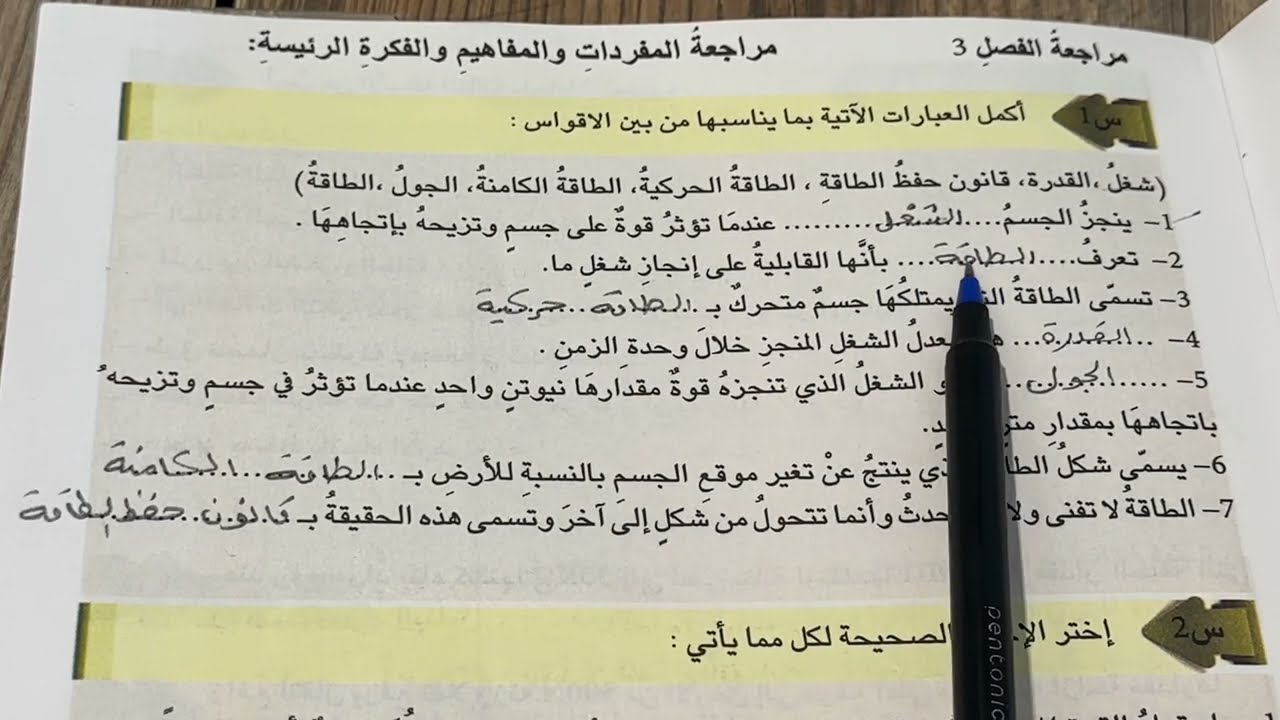 مراجعةُ الفصلِ 3 مراجعةُ المفرداتِ والمفاهيمِ والفكرةِ الرئيسةِ:
س1 أكمل العبارات الآتية بما يناسبها من بين الاقواس :
(شغلُ ،القدرة، قانون حفظُ الطاقةِ ، الطاقةُ الحركيةُ، الطاقةُ الكامنةُ، الجولُ ،الطاقةُ)
1- ينجزُ الجسمُ....الشغل......... عندمَا تؤثرُ قوةٌ على جسمٍ وتزيحهُ بإتجاهِهَا .
2- تعرفُ....الطاقة.... بأنَّها القابليةُ على إنجازِ شغلٍ ما.
3- تسمّى الطاقةُ يمتلكُهَا جسمٌ متحركٌ بـ ..الطاقة..حركية
4- ..القدرة... الشغلِ المنجزِ خلالَ وحدةِ الزمنِ .
5- .....الجول... الشغلُ الذي تنجزهُ قوةٌ مقدارهَا نيوتنٍ واحدٍ عندما تؤثرُ في جسمٍ وتزيحهُ
باتجاهها بمقدارِ
6- يسمّى شكلُ ينتجُ عنْ تغير موقعِ الجسم بالنسبةِ للأرضِ بـ ..الطاقة...الكامنة
7- الطاقةُ لا تفنى ولا وأنما تتحولُ من شكلٍ إلىَ آخرَ وتسمى هذه الحقيقةُ بـ قانون..حفظ الطاقة
س2 إختر الصحيحة لكل مما يأتي :
pentonic